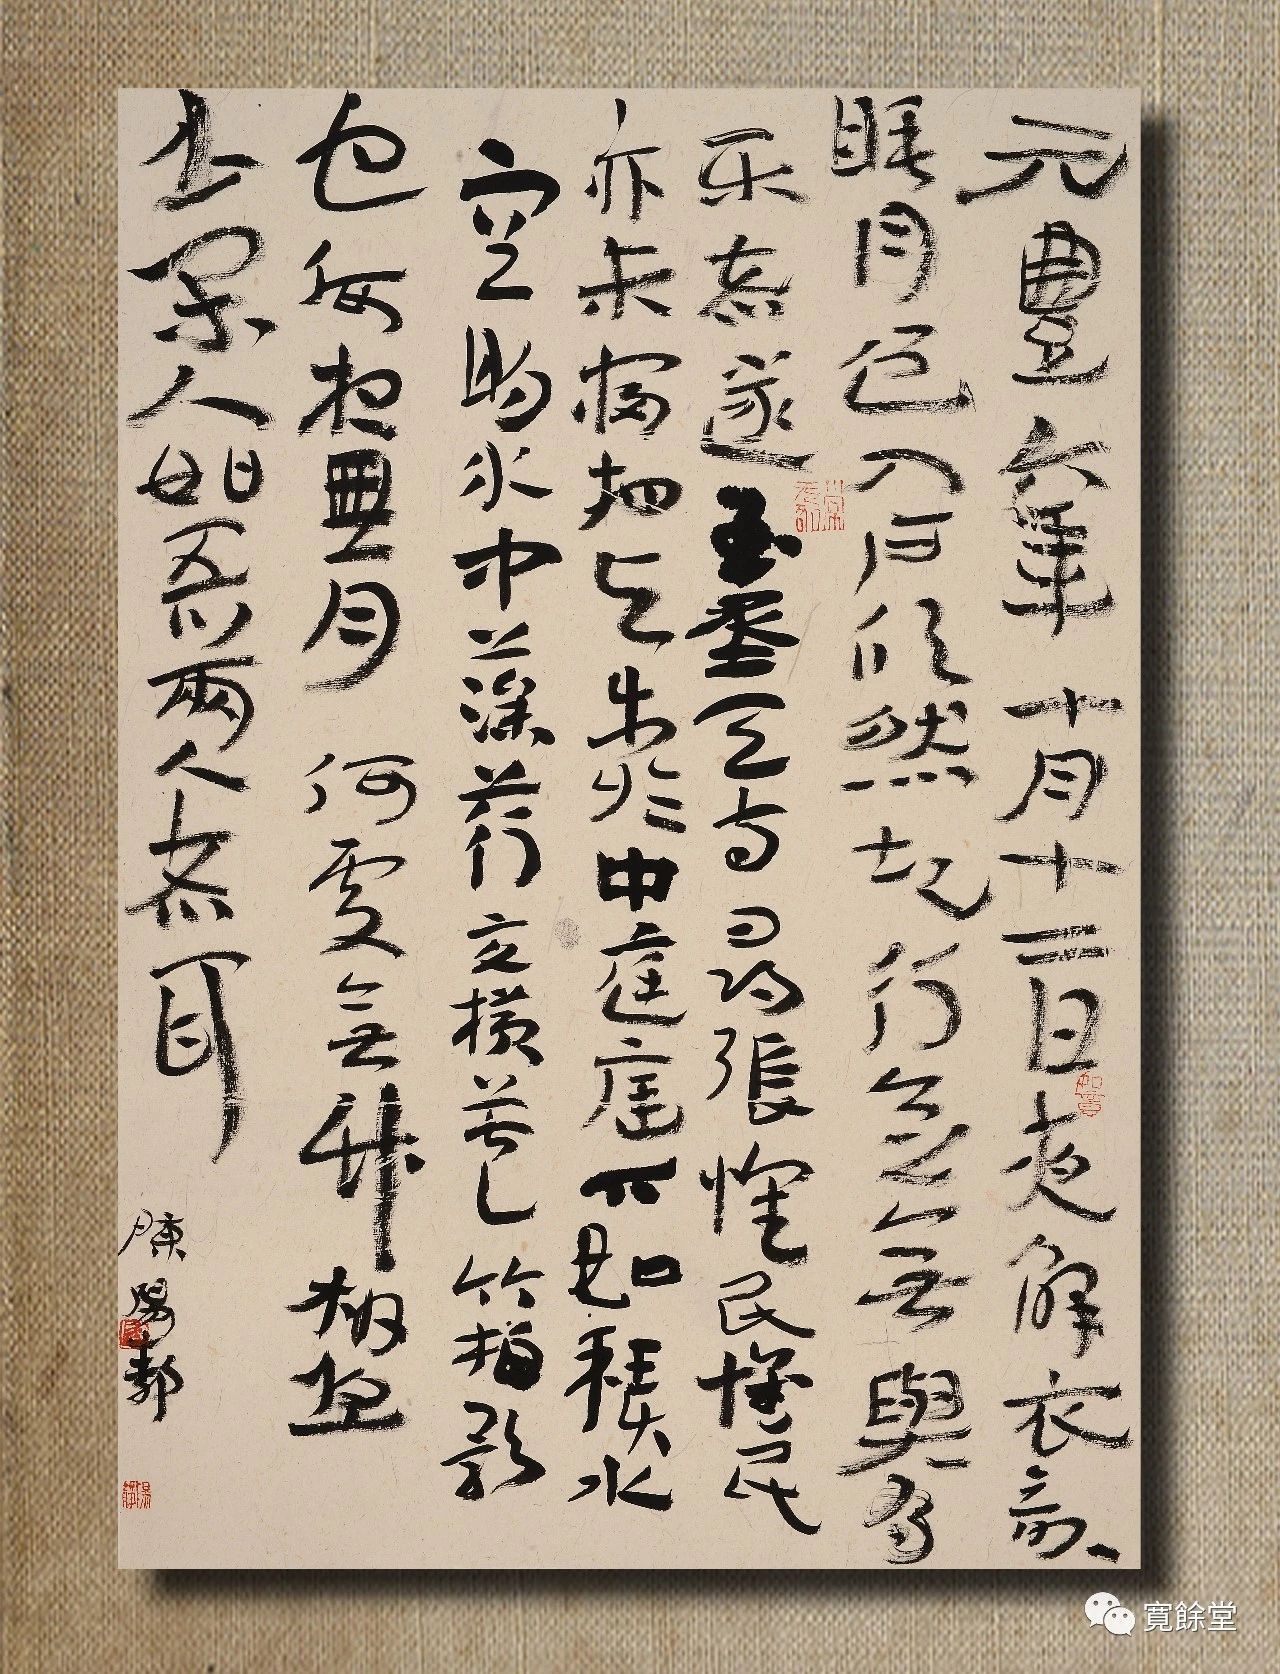 元豐六年十月十二日夜解衣欲
睡月色入戶欣然起行念無與為
樂者遂至承天寺尋張懷民懷民
亦未寢相與步於中庭庭下如積水
空明水中藻荇交橫蓋竹柏影
也何夜無月何處無竹柏但
少閑人如吾兩人者耳
陳陽
寬餘堂